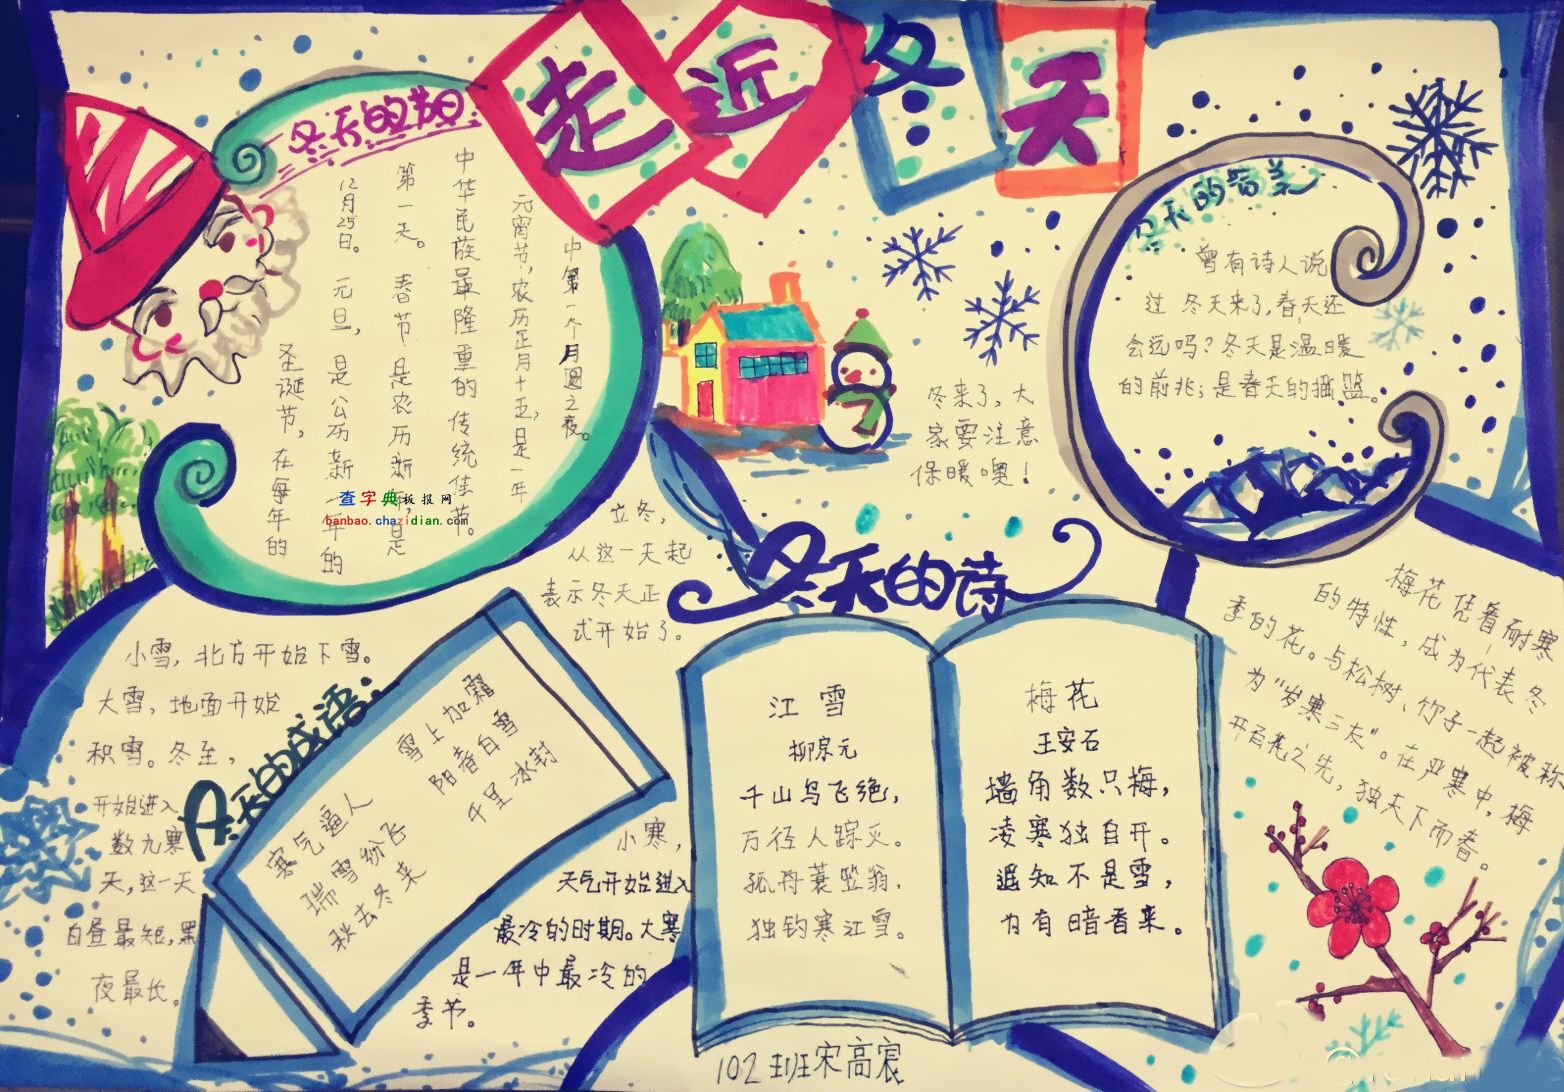 走近冬天
冬天的节日
圣诞节，在每年的
12月25日。元旦，是公历新一年的
第一天。春节是农历新年，是
中华民族最隆重的传统佳节。
元宵节，农历正月十五，是一年
中第一个月圆之夜。
查字典板报网
banbao.chazidian.com
冬来了，大
家要注意
保暖噢！
曾有诗人说
过 冬天来了，春天还
会远吗？冬天是温暖
的前兆；是春天的摇篮。
立冬，
从这一天起
表示冬天正
式开始了。
小雪，北方开始下雪。
大雪，地面开始
积雪。冬至，
开始进入
数九寒
天，这一天
白昼最短，黑
夜最长。
小寒，
天气开始进入
最冷的时期。大寒
是一年中最冷的
季节。
冬天的成语：
寒气逼人
瑞雪纷飞
秋去冬来
雪上加霜
阳春白雪
千里冰封
冬天的诗
江雪
柳宗元
千山鸟飞绝，
万径人踪灭。
孤舟蓑笠翁，
独钓寒江雪。
梅花
王安石
墙角数只梅，
凌寒独自开。
遥知不是雪，
为有暗香来。
梅花凭着耐寒
的特性，成为代表冬
季的花。与松树、竹子一起被称
为“岁寒三友”。在严寒中，梅
开百花之先，独天下而春。
102班宋高宸